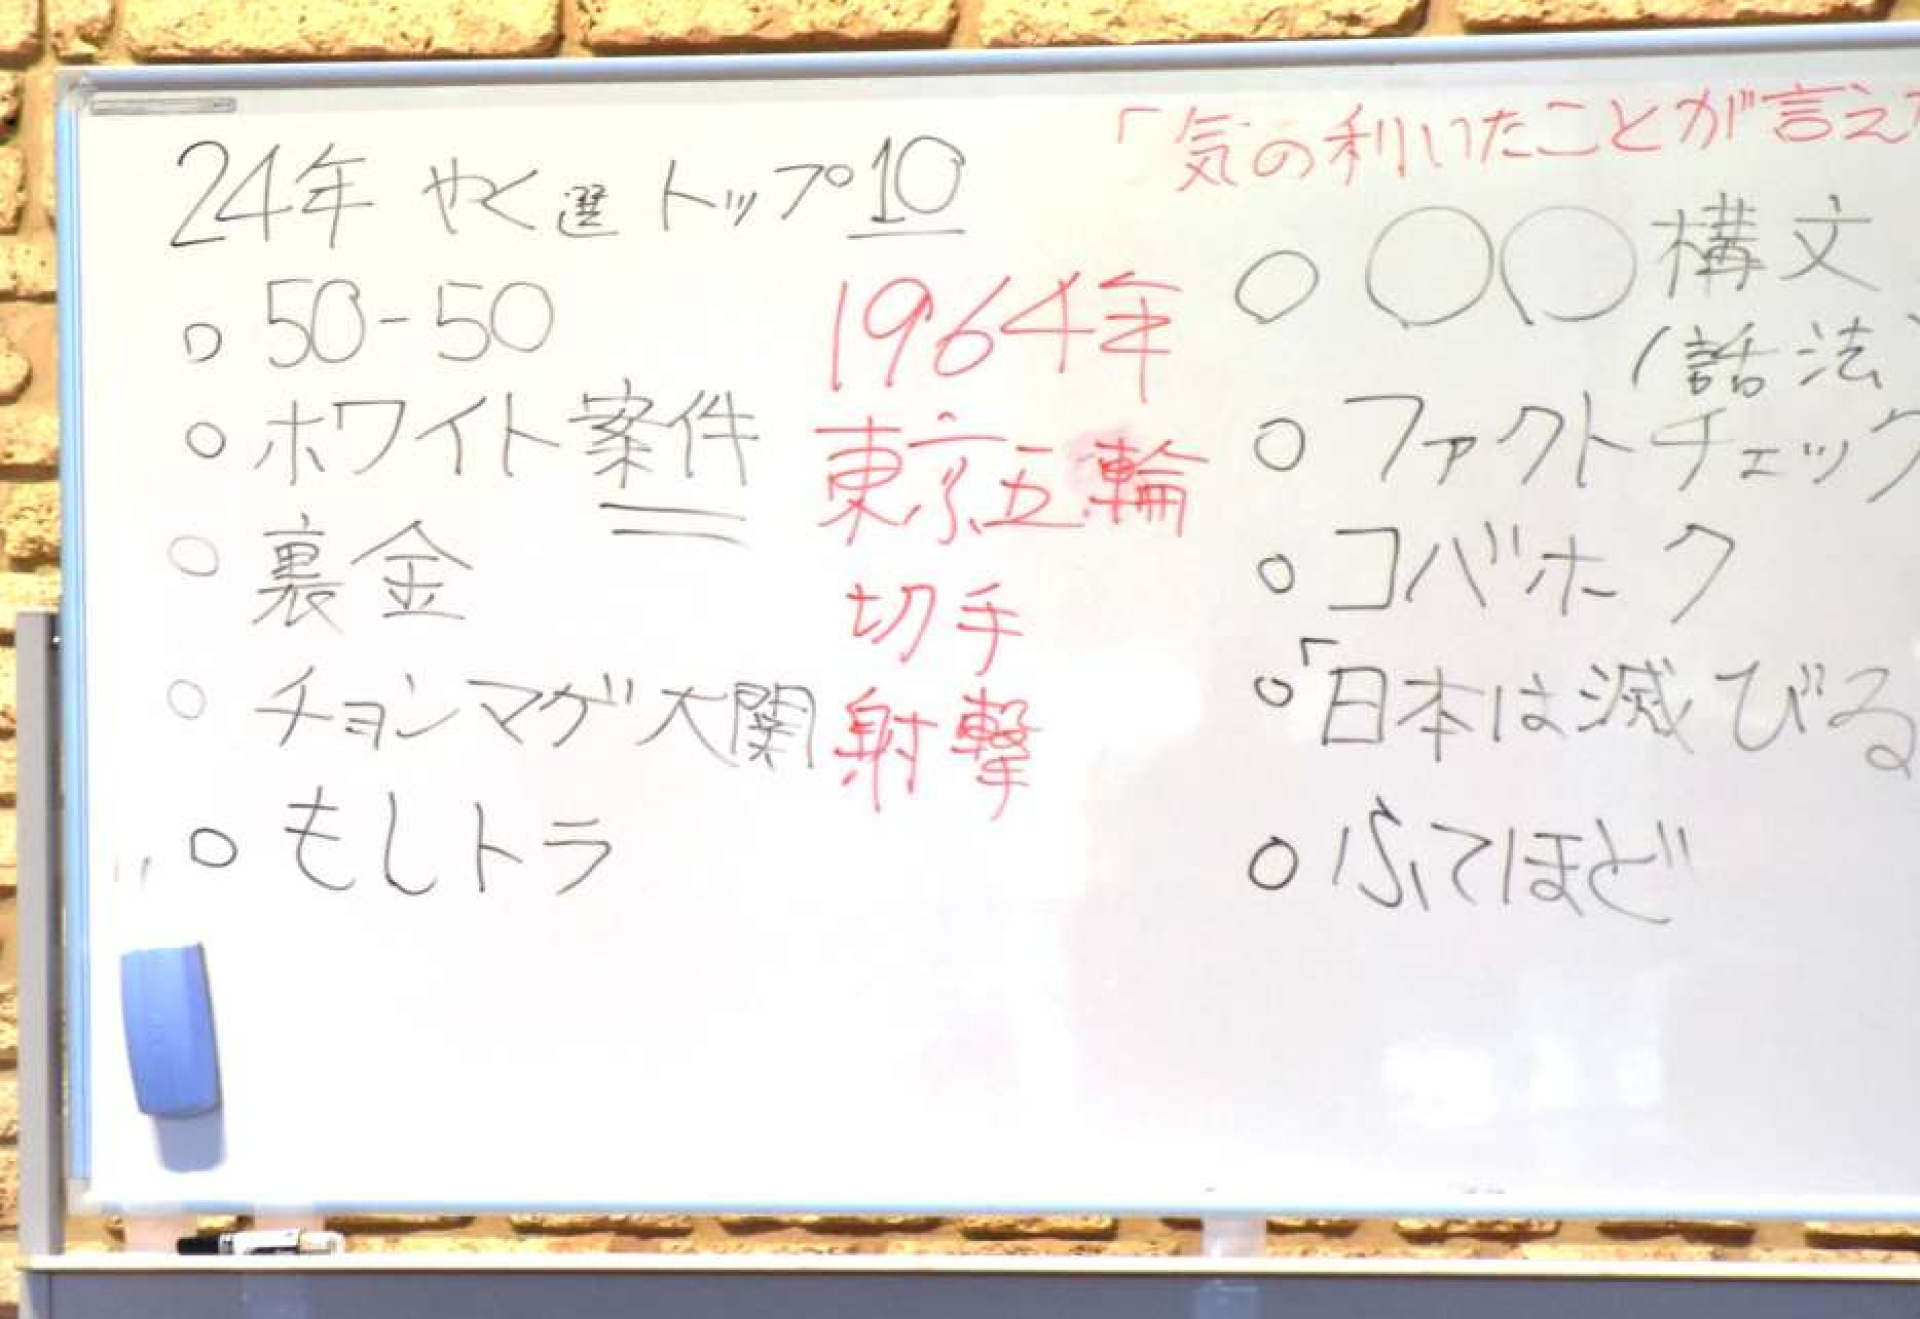 24年 やく選 トップ10
○ 50-50
○ ホワイト案件
○ 裏金
○ チョンマゲ大関
○ もしトラ
1964年
東京五輪
切手
射撃
「気の利いたことが言えな
○ ○○構文
(話法)
○ ファクトチェック
○ コバホーク
○「日本は滅びる
○ ふてほど